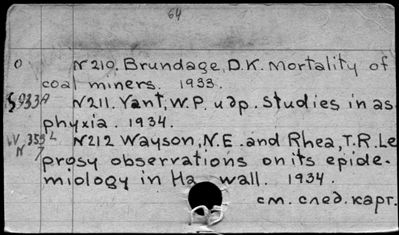 64
0 N210. Brundage, D.K. Mortality of
coal miners. 1933.
§933А N211. Yant, W.P. и др. Studies in as
phyxia. 1934.
W 353 N212 Wayson, N.E. and Rhea, T.R. Le
N 7 prosy observations on its epide-
miology in Ha wall. 1934.
см. след. карт.